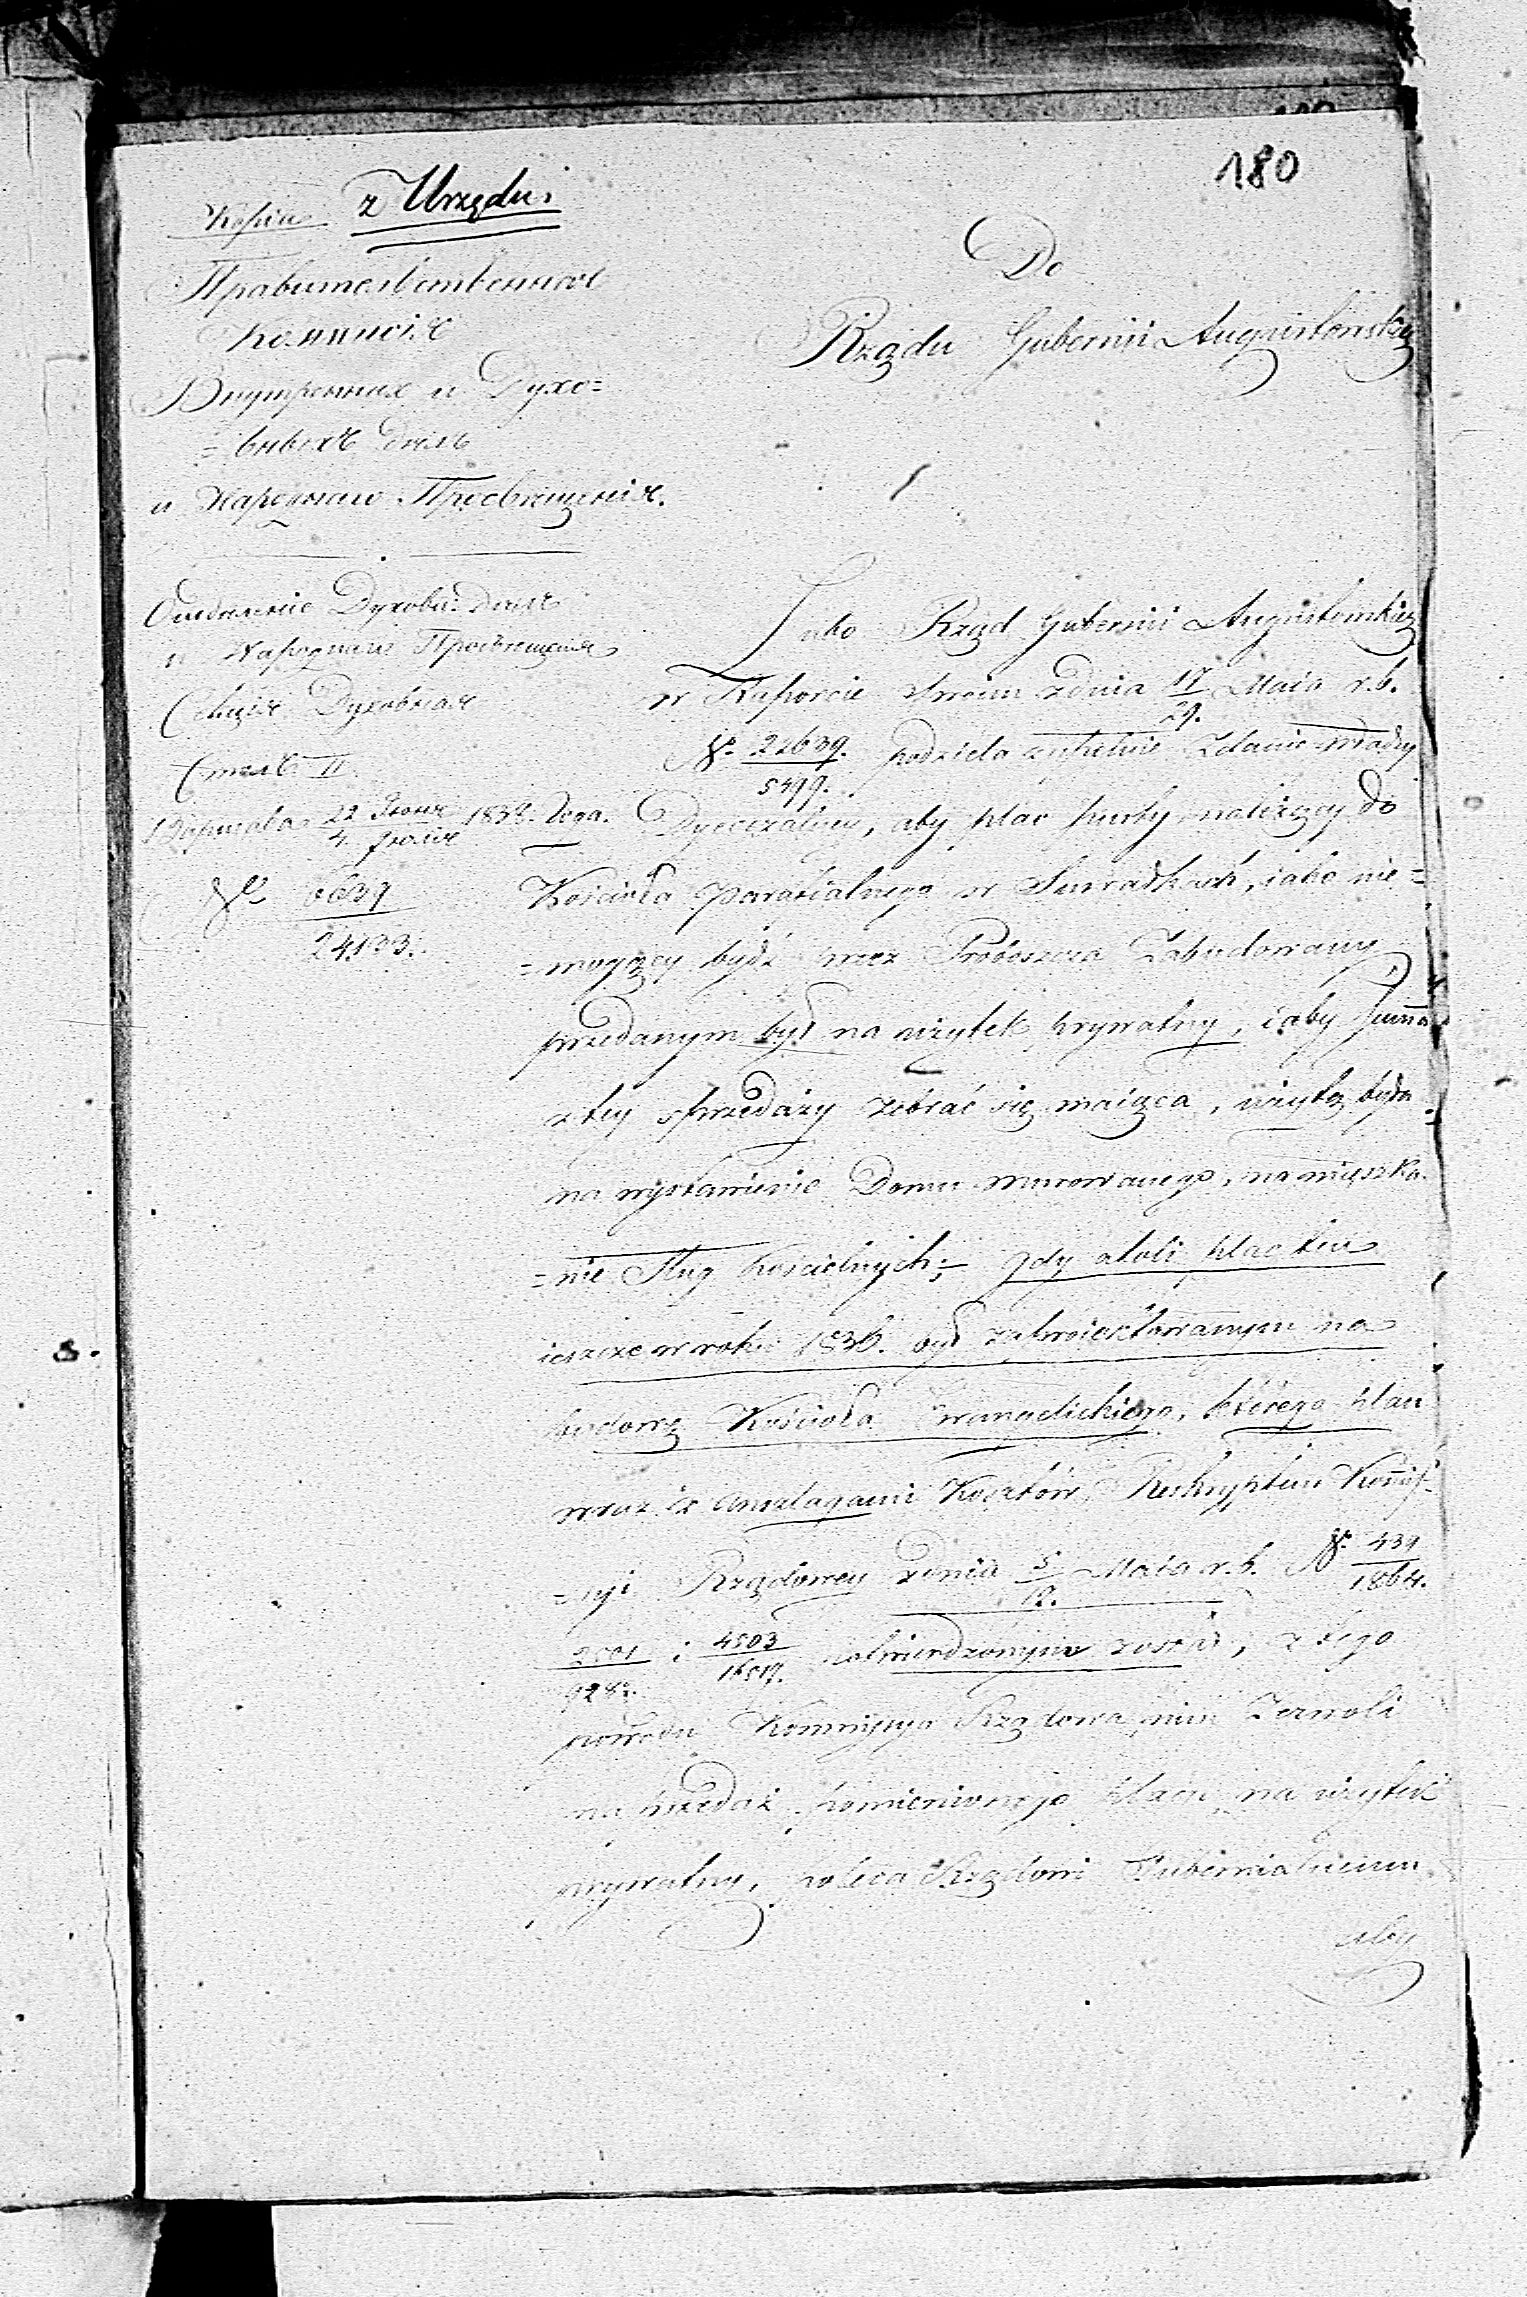 180
Kopia z Urzędu.
Правительственная
Коммисія
Внутреннихъ и Духо=
=вныхъ дѣлъ
и Народнаго Просвѣщенія.
Отдѣленіе Духовн: дѣлъ
и Народнаго Просвѣщенія
Секція Духовная
Столъ II
Варшава 22 Іюня / 4 Іюля 1838. года.
№ 6639 / 24133.
Do
Rządu Gubernii Augustowskiey
Jako Rząd Gubernii Augustowskiey
w Raporcie swoim z dnia 17/29. Maia r.b.
№ 22639. / 5499. podziela zupełnie Zdanie Władzy
Dyecezalney, aby plac pusty należący do
Kościoła Parafialnego w Suwałkach, iako nie=
=mogący bydź przez Proboszcza Zabudowany
przedanym był na użytek prywatny, i aby summa
z tey sprzedaży zebrać się maiąca, użytą była
na wystawienie Domu murowanego, na mięszka=
=nie Sług kościelnych; gdy atoli plac ten
ieszcze w roku 1836. był zaproiektowanym na
budowę Kościoła Ewangelickiego, którego plan
wraz z anszlagami Kosztów, Reskryptem Kommis=
=syi Rządowey z dnia 5/17. Maia r.b. № 439 / 1864.
2501 / 9282. i 4503 / 16517. zatwierdzonym został, z tego
powodu Kommissya Rządowa nim Zezwoli
na przedaż pomienionego placu na użytek
prywatny, poleca Rządowi Gubernialnemu
aby